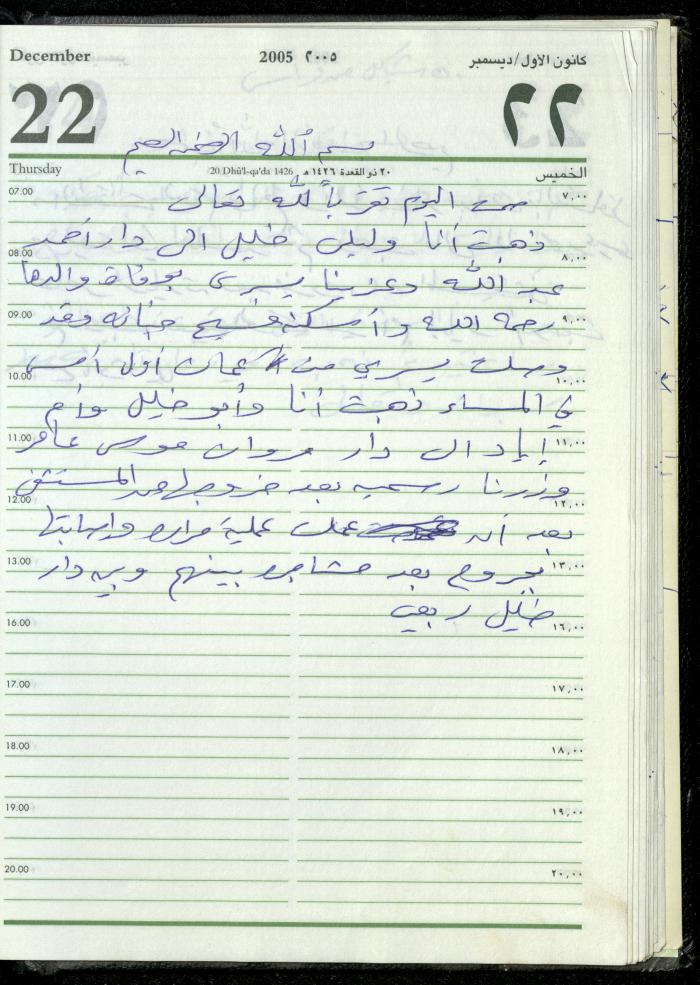 December 2005 ٢٠٠٥ كانون الاول/ديسمبر
22 ٢٢
بسم الله الرحمن الرحيم
Thursday 20 Dhû'l-qa'da 1426 ٢٠ ذو القعدة ١٤٢٦ هـ الخميس
07.00 صمت اليوم تقرباً لله تعالى ٧,٠٠
ذهبت أنا وليلى خليل الى دار أحمد
08.00 ٨,٠٠
عبد الله وعزينا يسرى بوفاة والدها
09.00 رحمه الله وأسكنه فسيح جنانه وقد ٩,٠٠
وصلت يسرى من عمان أول أمس
10.00 ١٠,٠٠
في المساء ذهبت أنا وأبو خليل وأم
11.00 إياد الى دار مروان موسى عامر ١١,٠٠
وزرنا رسميه بعد خروجها من المستشفى
12.00 ١٢,٠٠
بعد أن عملت عملية مراره وإصابتها
13.00 بجروح بعد مشاجره بينهم وبين دار ١٣,٠٠
خليل ربيع
16.00 ١٦,٠٠
17.00 ١٧,٠٠
18.00 ١٨,٠٠
19.00 ١٩,٠٠
20.00 ٢٠,٠٠